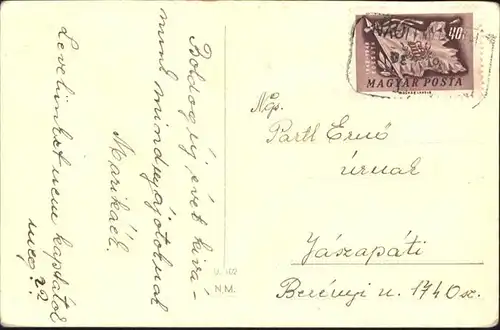 Boldog uj évet kivá-
nunk mindnyájotoknak
Marikáék.
Levelünket nem kaptátok
meg??
40f
MAGYAR POSTA
Ngs.
Partl Ernő
úrnak
Jászapáti
Berényi u. 1740 sz.
N.M.